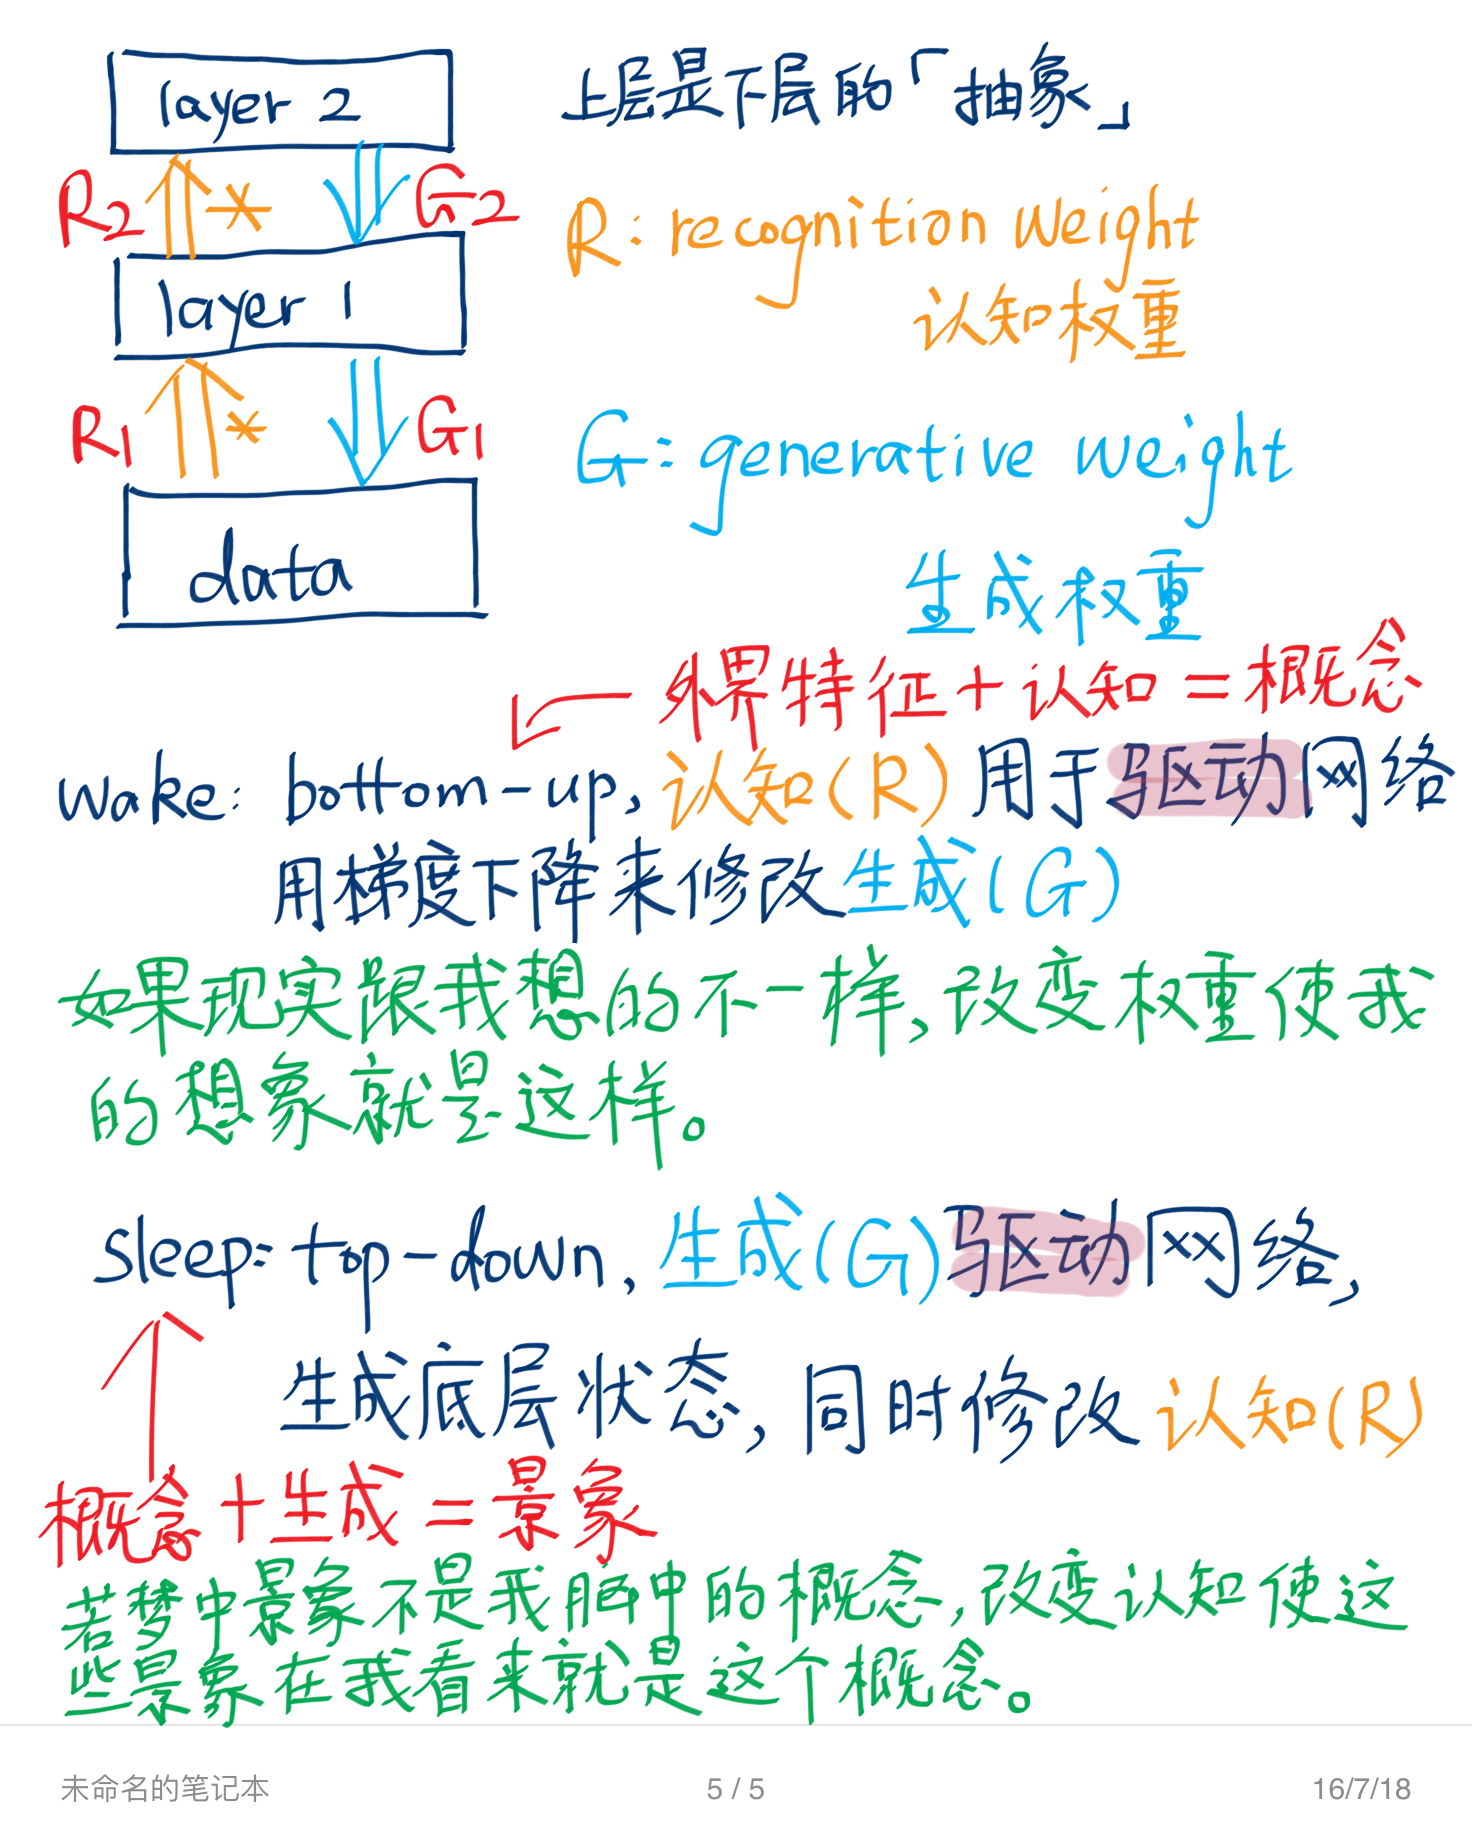 layer 2
上层是下层的「抽象」
R2
*
G2
R: recognition weight
认知权重
layer 1
R1
*
G1
G: generative weight
生成权重
data
外界特征+认知=概念
wake: bottom-up, 认知(R)用于驱动网络
用梯度下降来修改生成(G)
如果现实跟我想的不一样,改变权重使我
的想象就是这样。
sleep: top-down, 生成(G)驱动网络,
生成底层状态,同时修改认知(R)
概念+生成=景象
若梦中景象不是我脑中的概念,改变认知使这
些景象在我看来就是这个概念。
未命名的笔记本
5 / 5
16/7/18